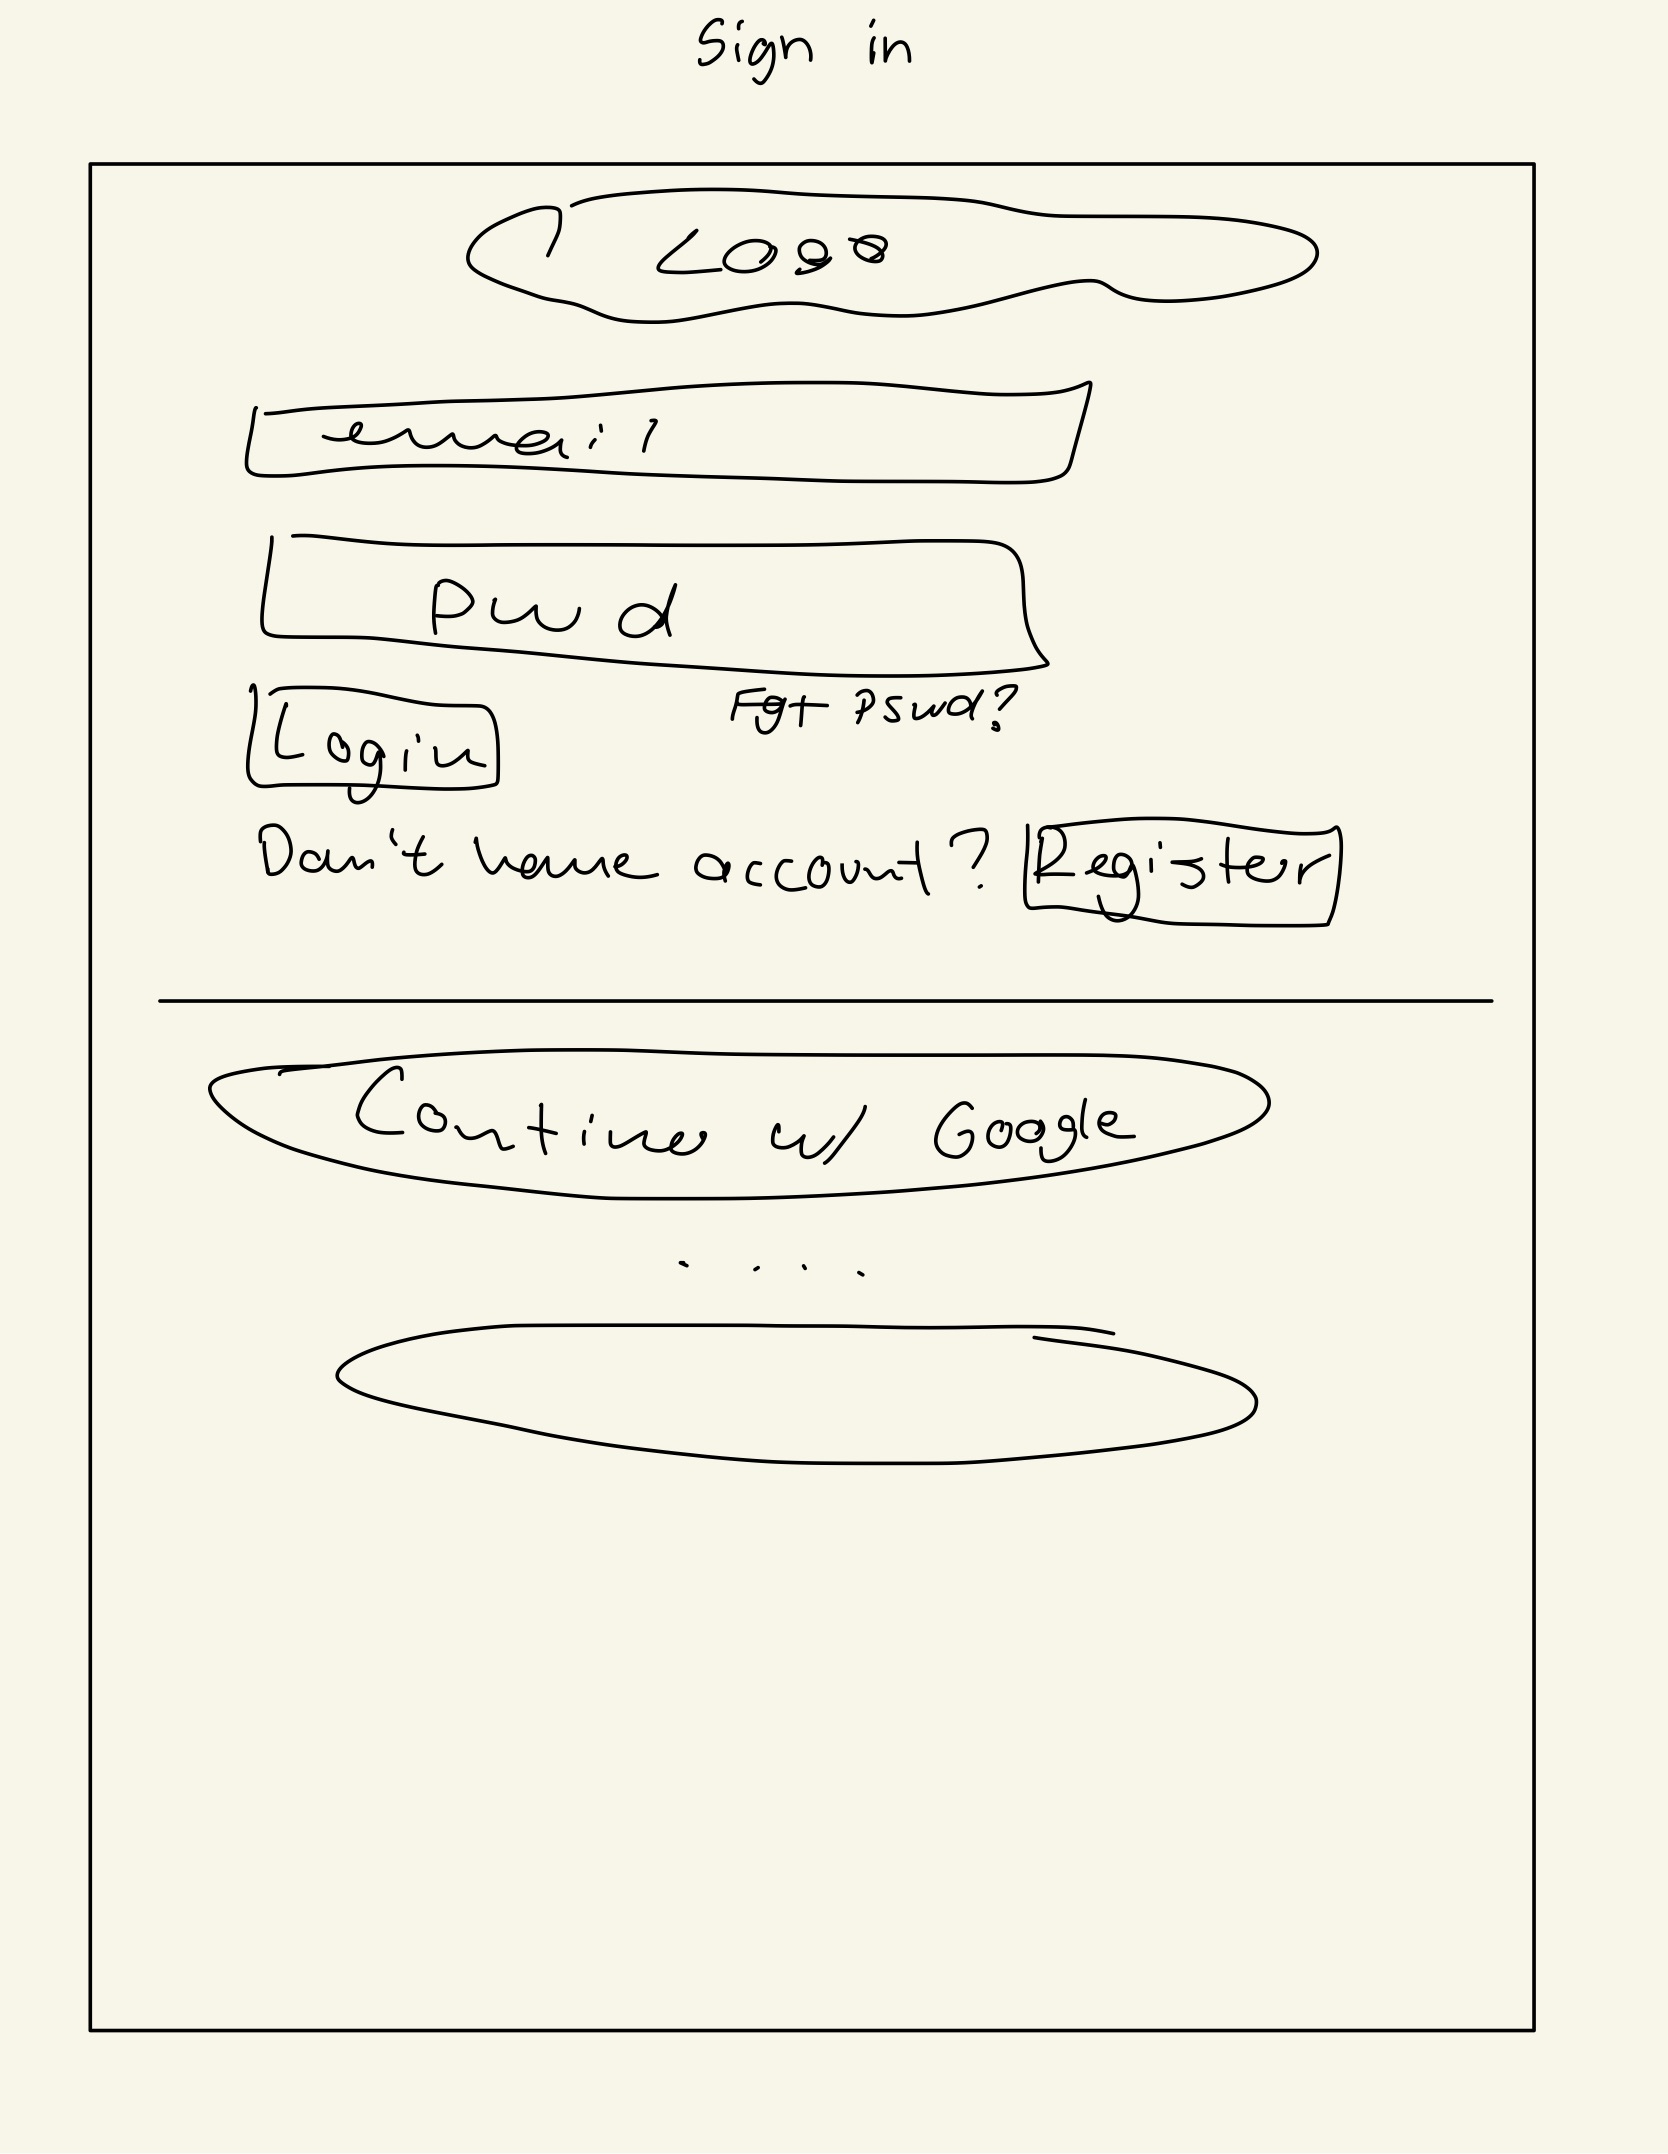 Sign in
Logo
email
Pwd
Fgt Pswd?
Login
Don't have account? Register
Continue w/ Google
....